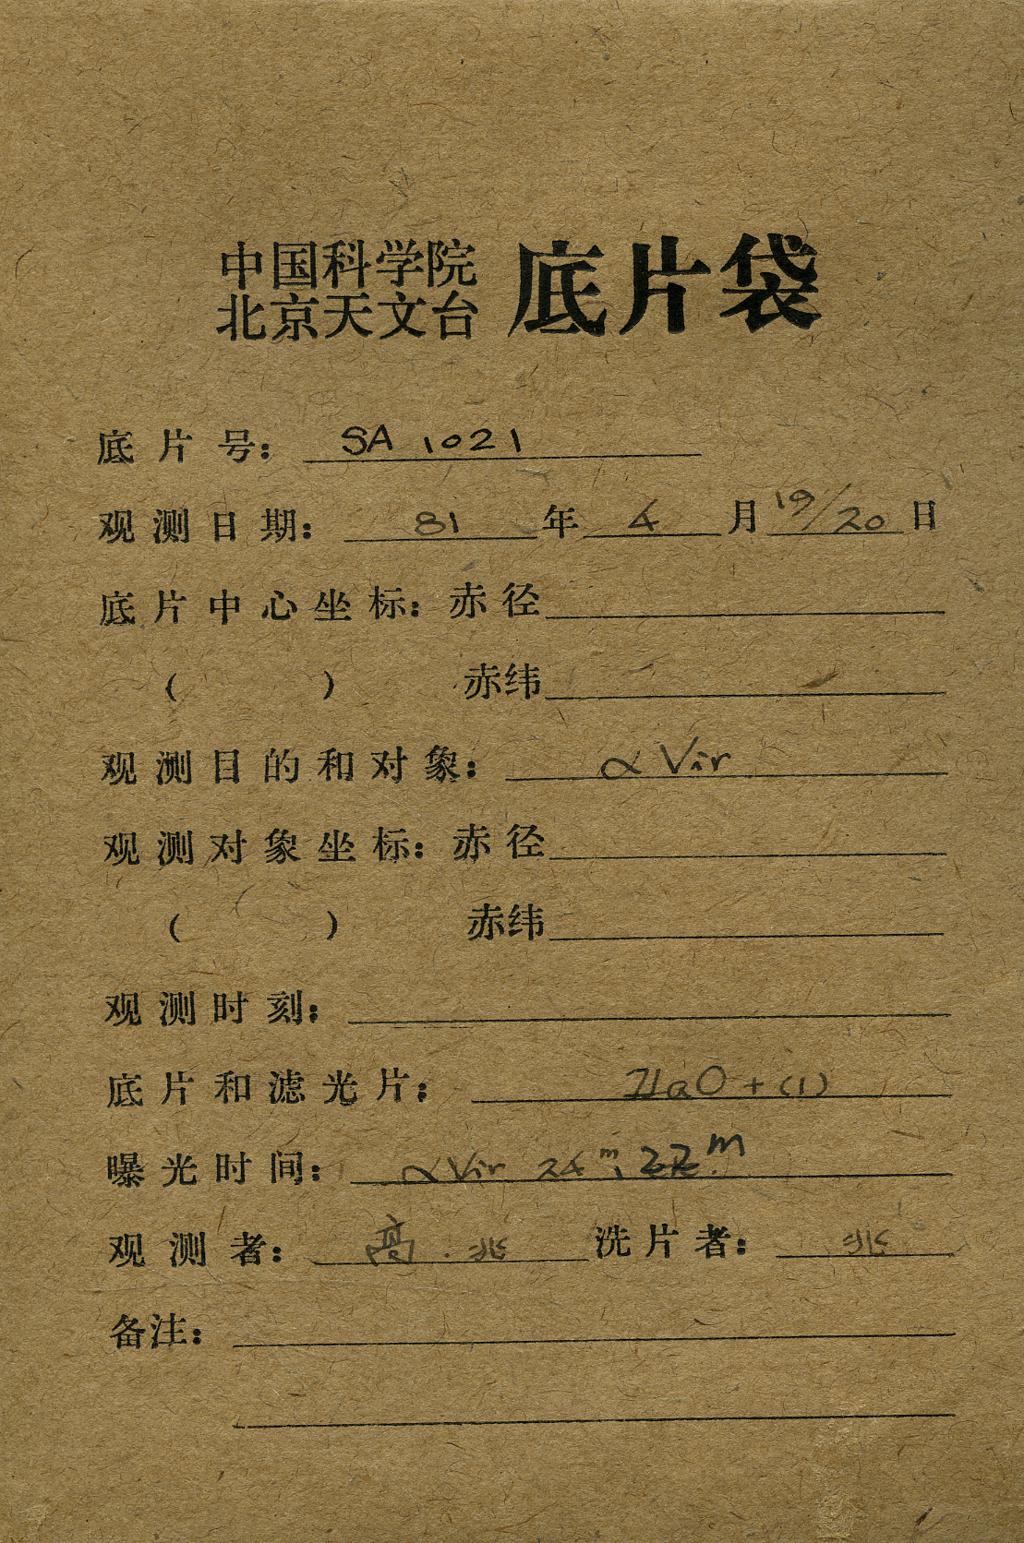 中国科学院
北京天文台 底片袋
底片号： SA 1021
观测日期： 81 年 4 月 19/20 日
底片中心坐标：赤径
( ) 赤纬
观测目的和对象： α Vir
观测对象坐标：赤径
( ) 赤纬
观测时刻：
底片和滤光片： IIaO + (1)
曝光时间： αVir 24m, 22m
观测者： 高. 兆 洗片者： 兆
备注：